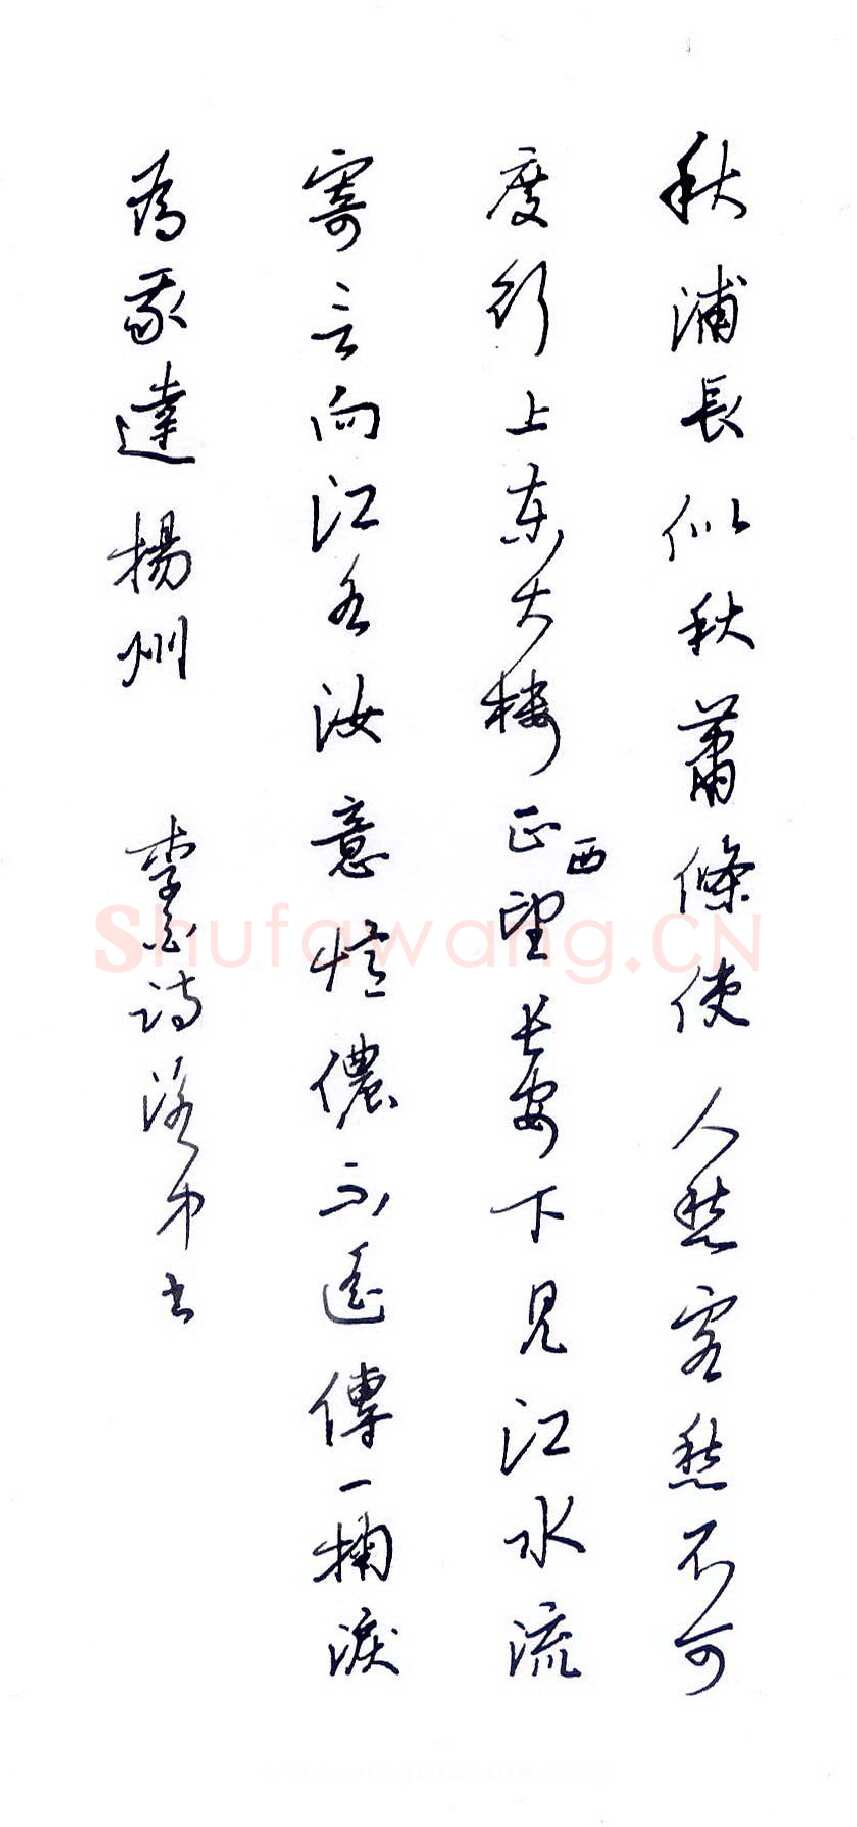 秋浦長似秋蕭條使人愁客愁不可
度行上东大楼正西望长安下見江水流
寄言向江水汝意憶儂不遙傳一掬淚
為我達揚州 李白詩 书
Shufawang.CN